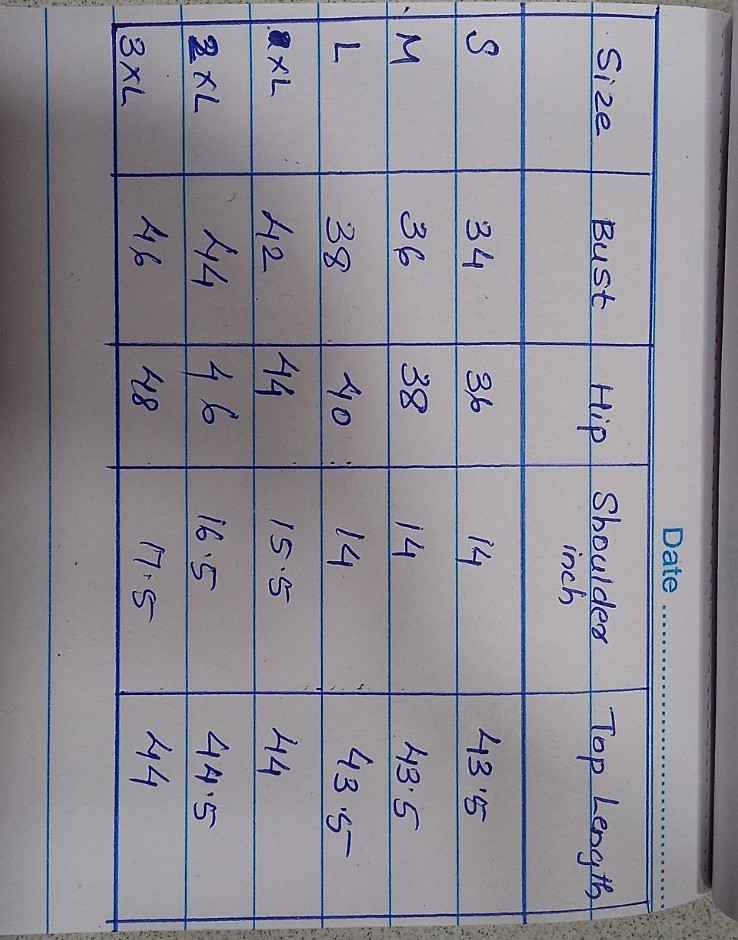 Date
Size Bust Hip Shoulder inch Top Length
S 34 36 14 43.5
M 36 38 14 43.5
L 38 40 14 43.5
XL 42 44 15.5 44
2XL 44 46 16.5 44.5
3XL 46 48 17.5 44